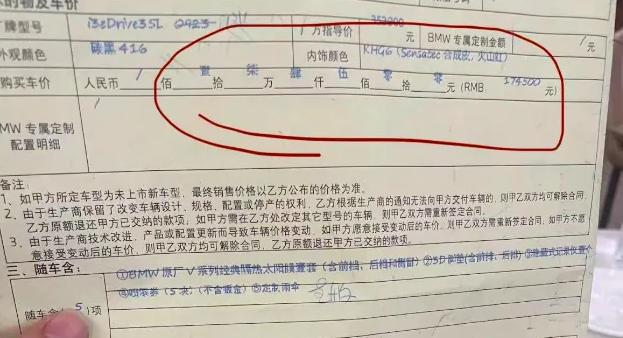 的物及车价
牌型号 i3eDrive35L 0423- 厂方指导价 353900 元 BMW 专属定制金额 / 元
外观颜色 碳黑416 内饰颜色 KHG6 (Sensatec 合成皮, 火山红)
购买车价 人民币 / 佰 壹 拾 柒 万 肆 仟 伍 佰 零 拾 零 元 (RMB. 174500 元)
MW 专属定制 /
配置明细
备注:
1、如甲方所定车型为未上市新车型，最终销售价格以乙方公布的价格为准。
2、由于生产商保留了改变车辆设计、规格、配置或停产的权利，乙方根据生产商的通知无法向甲方交付车辆的，则甲乙双方均可解除合同，
乙方原额退还甲方已交纳的款项；如甲方需在乙方处改定其它型号的车辆，则甲乙双方需重新签定合同。
3、由于生产商技术改进、产品或配置更新而导致车辆价格变动，如甲方愿意接受变动后的车价，则甲乙双方需重新签定合同，如甲方不愿
意接受变动后的车价，则甲乙双方均可解除合同，乙方原额退还甲方已交纳的款项。
三、随车含：
①BMW原厂V系列经典隔热太阳膜壹套（含前档、后档和侧窗）②3D脚垫（含前排、后排）③隐藏式记录仪壹个
随车含（5）项 ④喷漆券（5次）（不含钣金）⑤定制雨伞